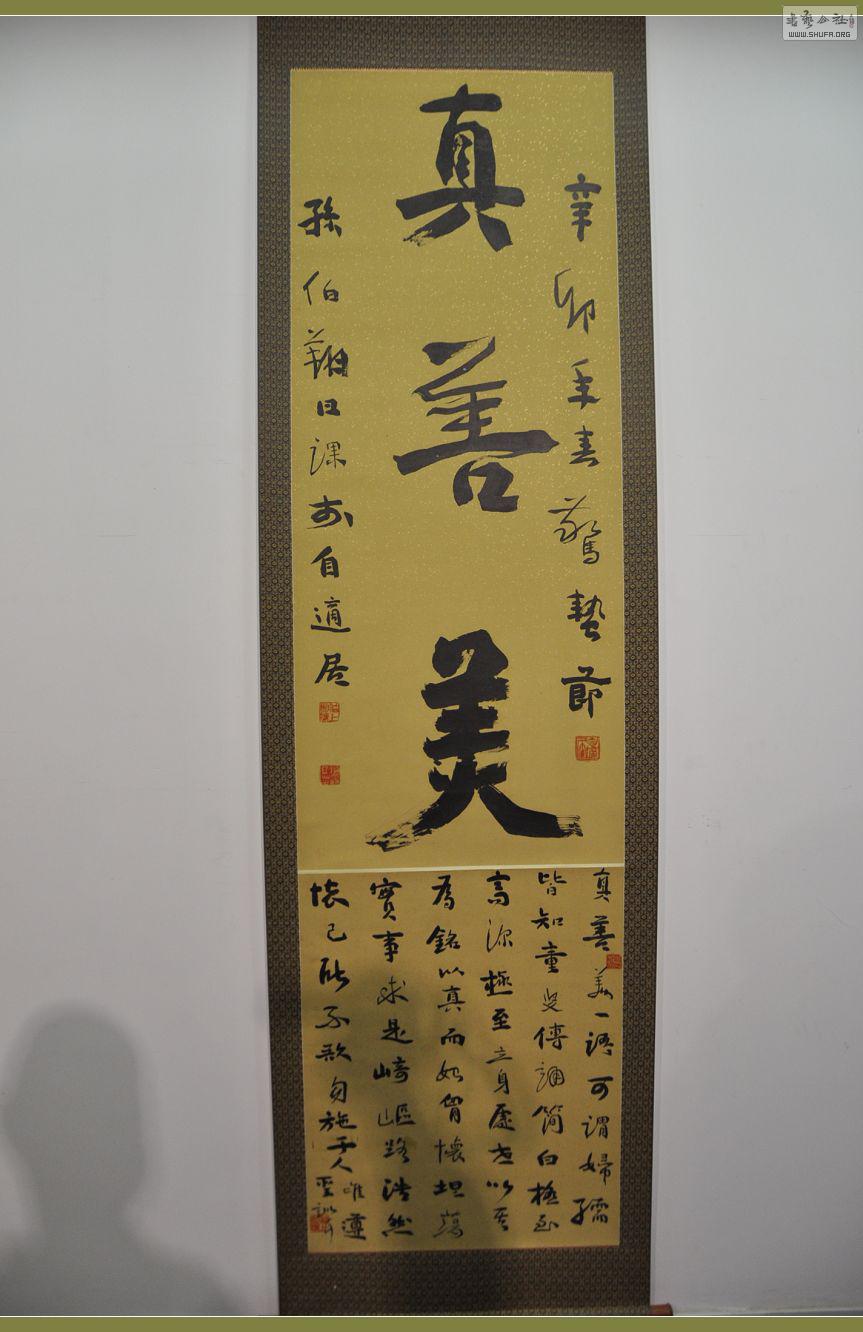 真善美
辛卯年春驚蟄節
孫伯翔日課於自適居
真善美一語可謂婦孺
皆知童叟傳誦簡白極至
高深極至立身處世以其
為銘以真而始胸懷坦蕩
實事求是崎嶇路浩然
懷己所不欲勿施于人唯遵
聖訓
書藝公社
WWW.SHUFA.ORG